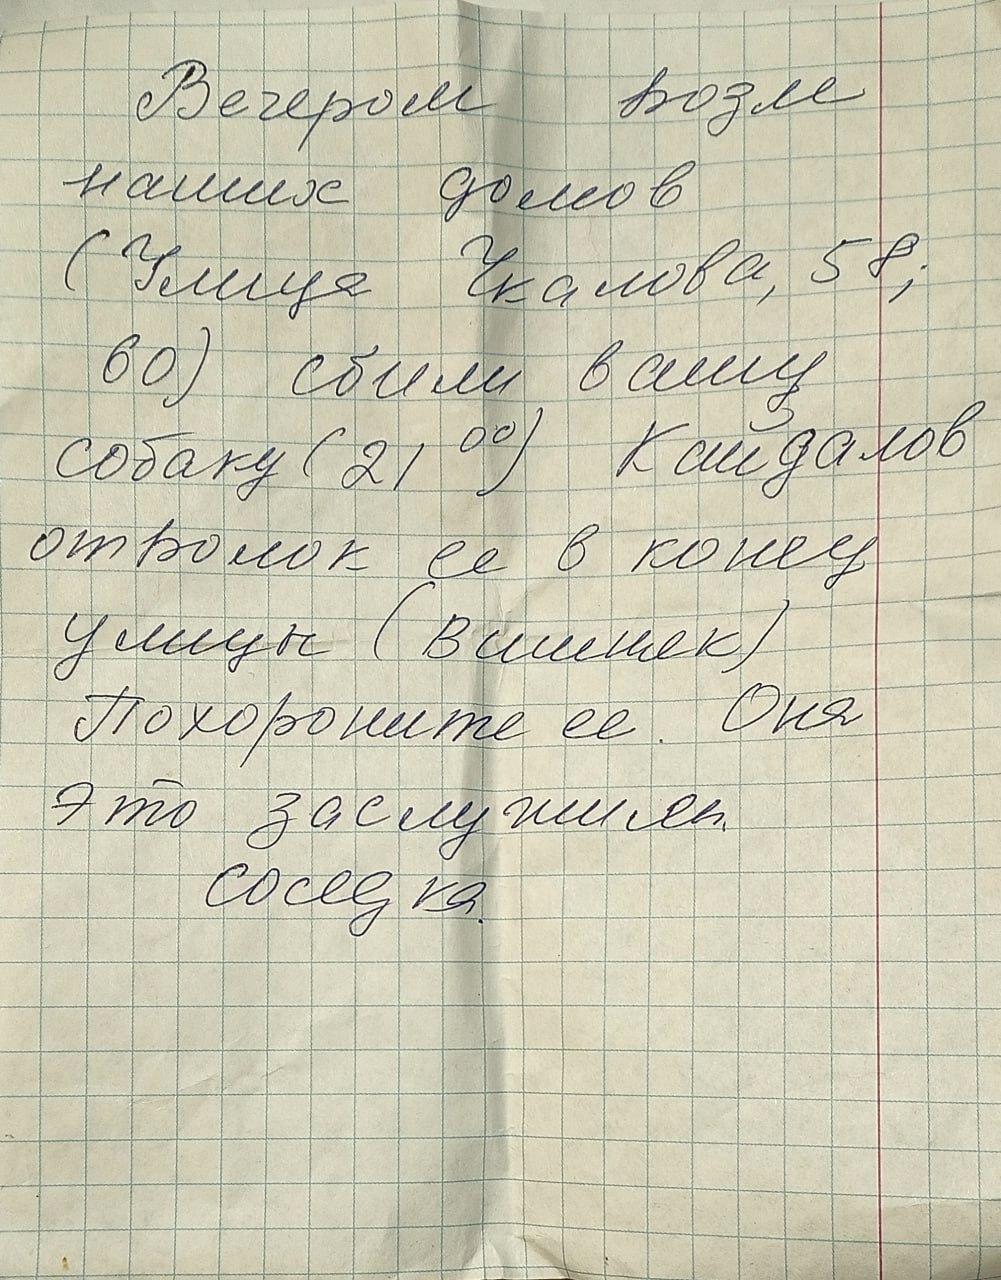 Вечером возле
наших домов
(Улица Чкалова, 58;
60) сбили вашу
собаку (21⁰⁰) Кайдалов
отволок ее в конец
улицы (Вишняк)
Похороните ее. Она
это заслужила.
соседка.